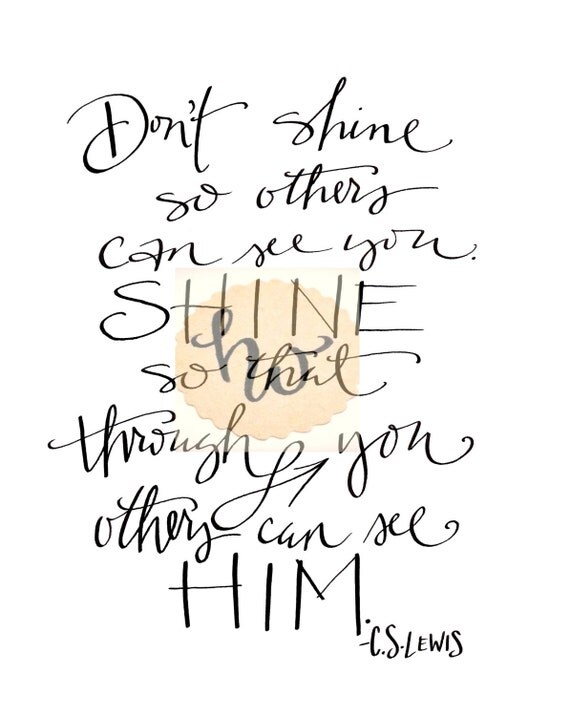 Don't shine
so others
can see you.
SHINE
ho
so that
through you
others can see
HIM.
-C.S.LEWIS